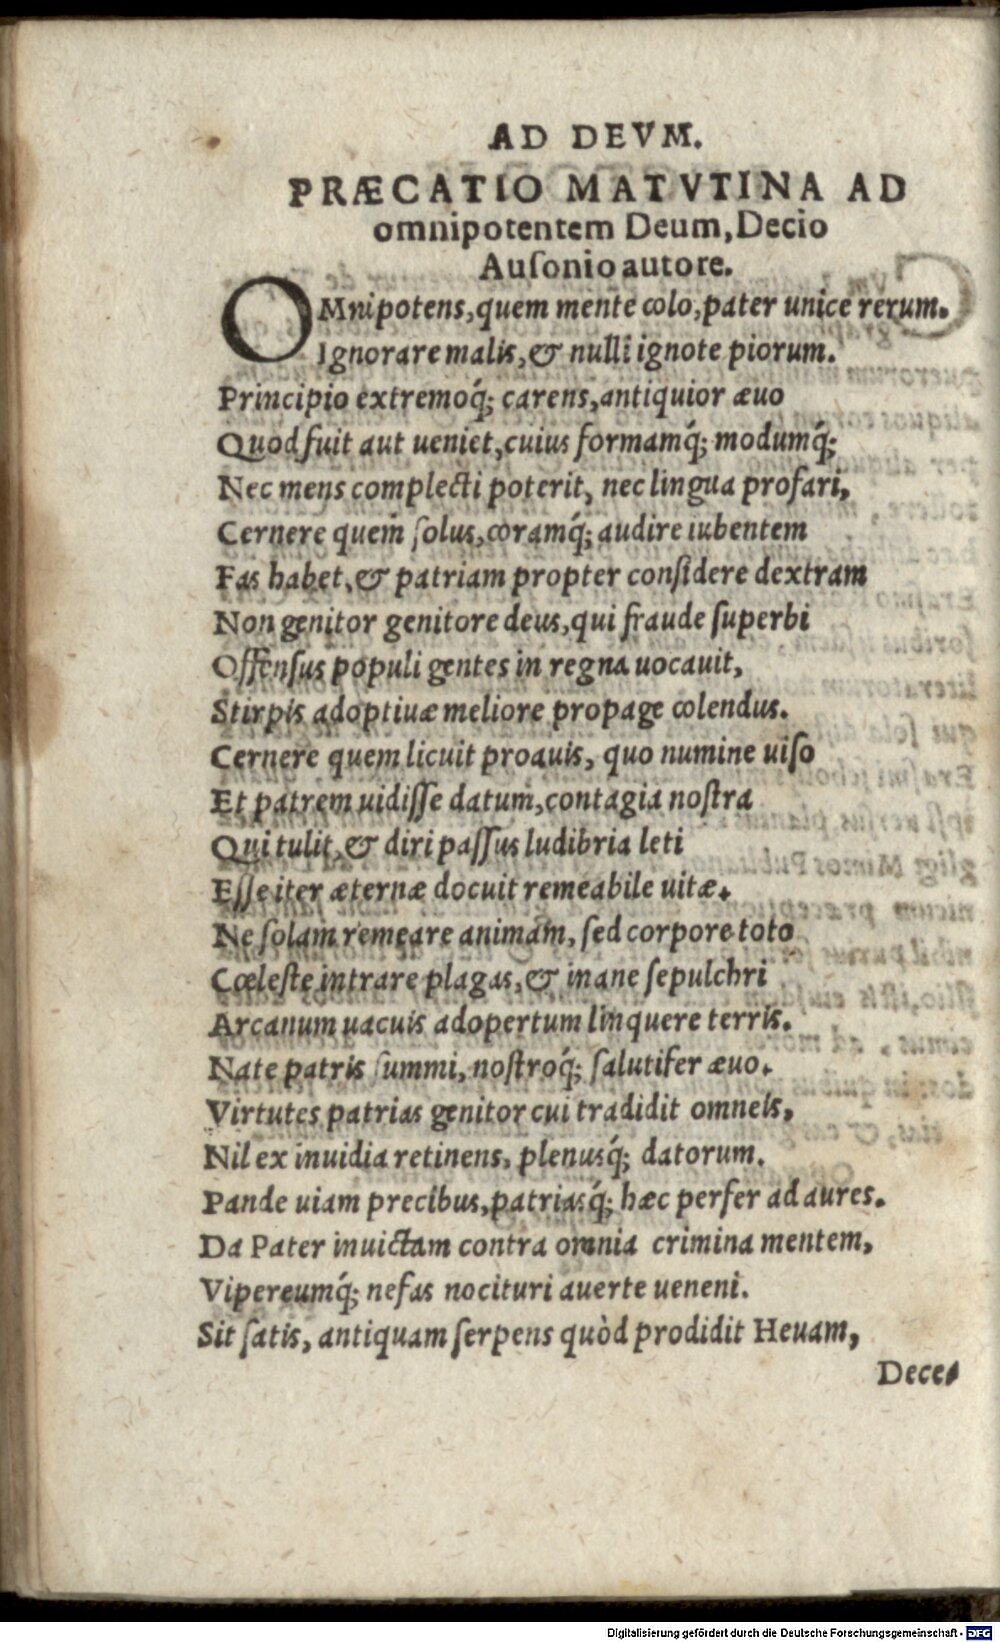 AD DEVM.
PRÆCATIO MATVTINA AD
omnipotentem Deum, Decio
Auſonio autore.
OMnipotens, quem mente colo, pater unice rerum.
Ignorare malis, & nulli ignote piorum.
Principio extremoq́; carens, antiquior æuo
Quod fuit aut ueniet, cuius formamq́; modumq́;
Nec mens complecti poterit, nec lingua profari,
Cernere quem ſolus, coramq́; audire iubentem
Fas habet, & patriam propter conſidere dextram
Non genitor genitore deus, qui fraude ſuperbi
Offenſus populi gentes in regna uocauit,
Stirpis adoptiuæ meliore propage colendus.
Cernere quem licuit proauis, quo numine uiſo
Et patrem uidiſſe datum, contagia noſtra
Qui tulit, & diri paſſus ludibria leti
Eſſe iter æternæ docuit remeabile uitæ.
Ne ſolam remeare animam, ſed corpore toto
Cœleſte intrare plagas, & inane ſepulchri
Arcanum uacuis adopertum linquere terris.
Nate patris ſummi, noſtroq́; ſalutifer æuo.
Virtutes patrias genitor cui tradidit omneis,
Nil ex inuidia retinens, plenusq́; datorum.
Pande uiam precibus, patriasq́; hæc perfer ad aures.
Da Pater inuictam contra omnia crimina mentem,
Vipereumq́; nefas nocituri auerte ueneni.
Sit ſatis, antiquam ſerpens quòd prodidit Heuam,
Dece-
Digitalisierung gefördert durch die Deutsche Forschungsgemeinschaft - DFG